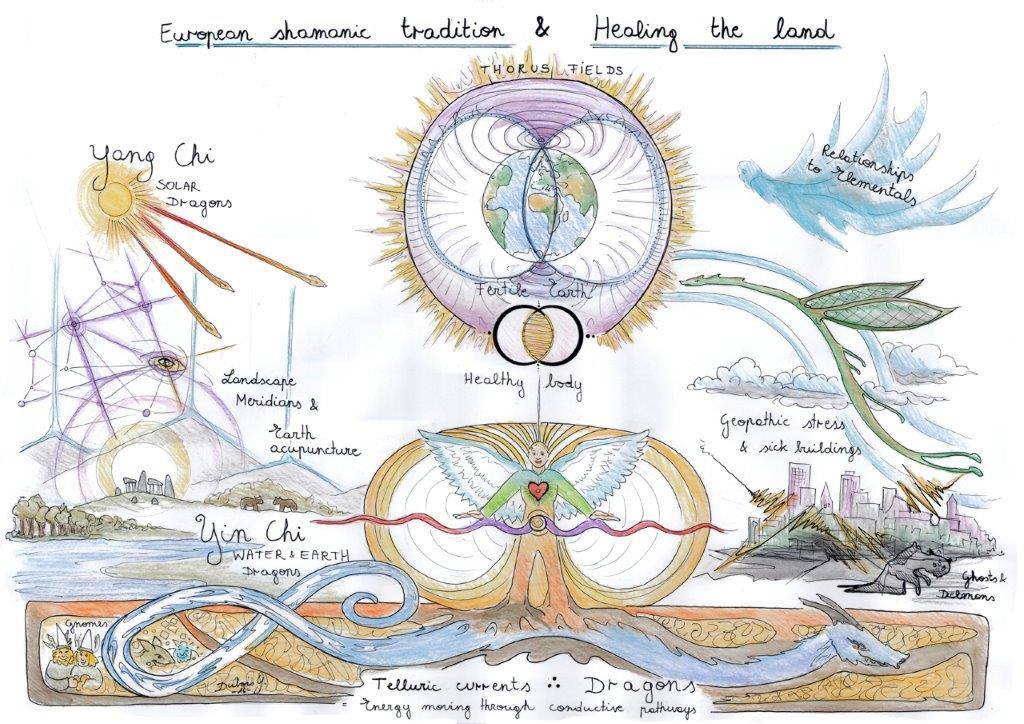 European shamanic tradition & Healing the land
THORUS FIELDS
Yang Chi
SOLAR
DRAGONS
Relationships
to Elementals
Fertile Earth
Healthy body
Landscape
Meridians &
Earth
acupuncture
Geopathic stress
& sick buildings
Yin Chi
WATER & EARTH
Dragons
Ghosts &
Delmons
Gnomes
Telluric currents ∴ Dragons
= Energy moving through conductive pathways